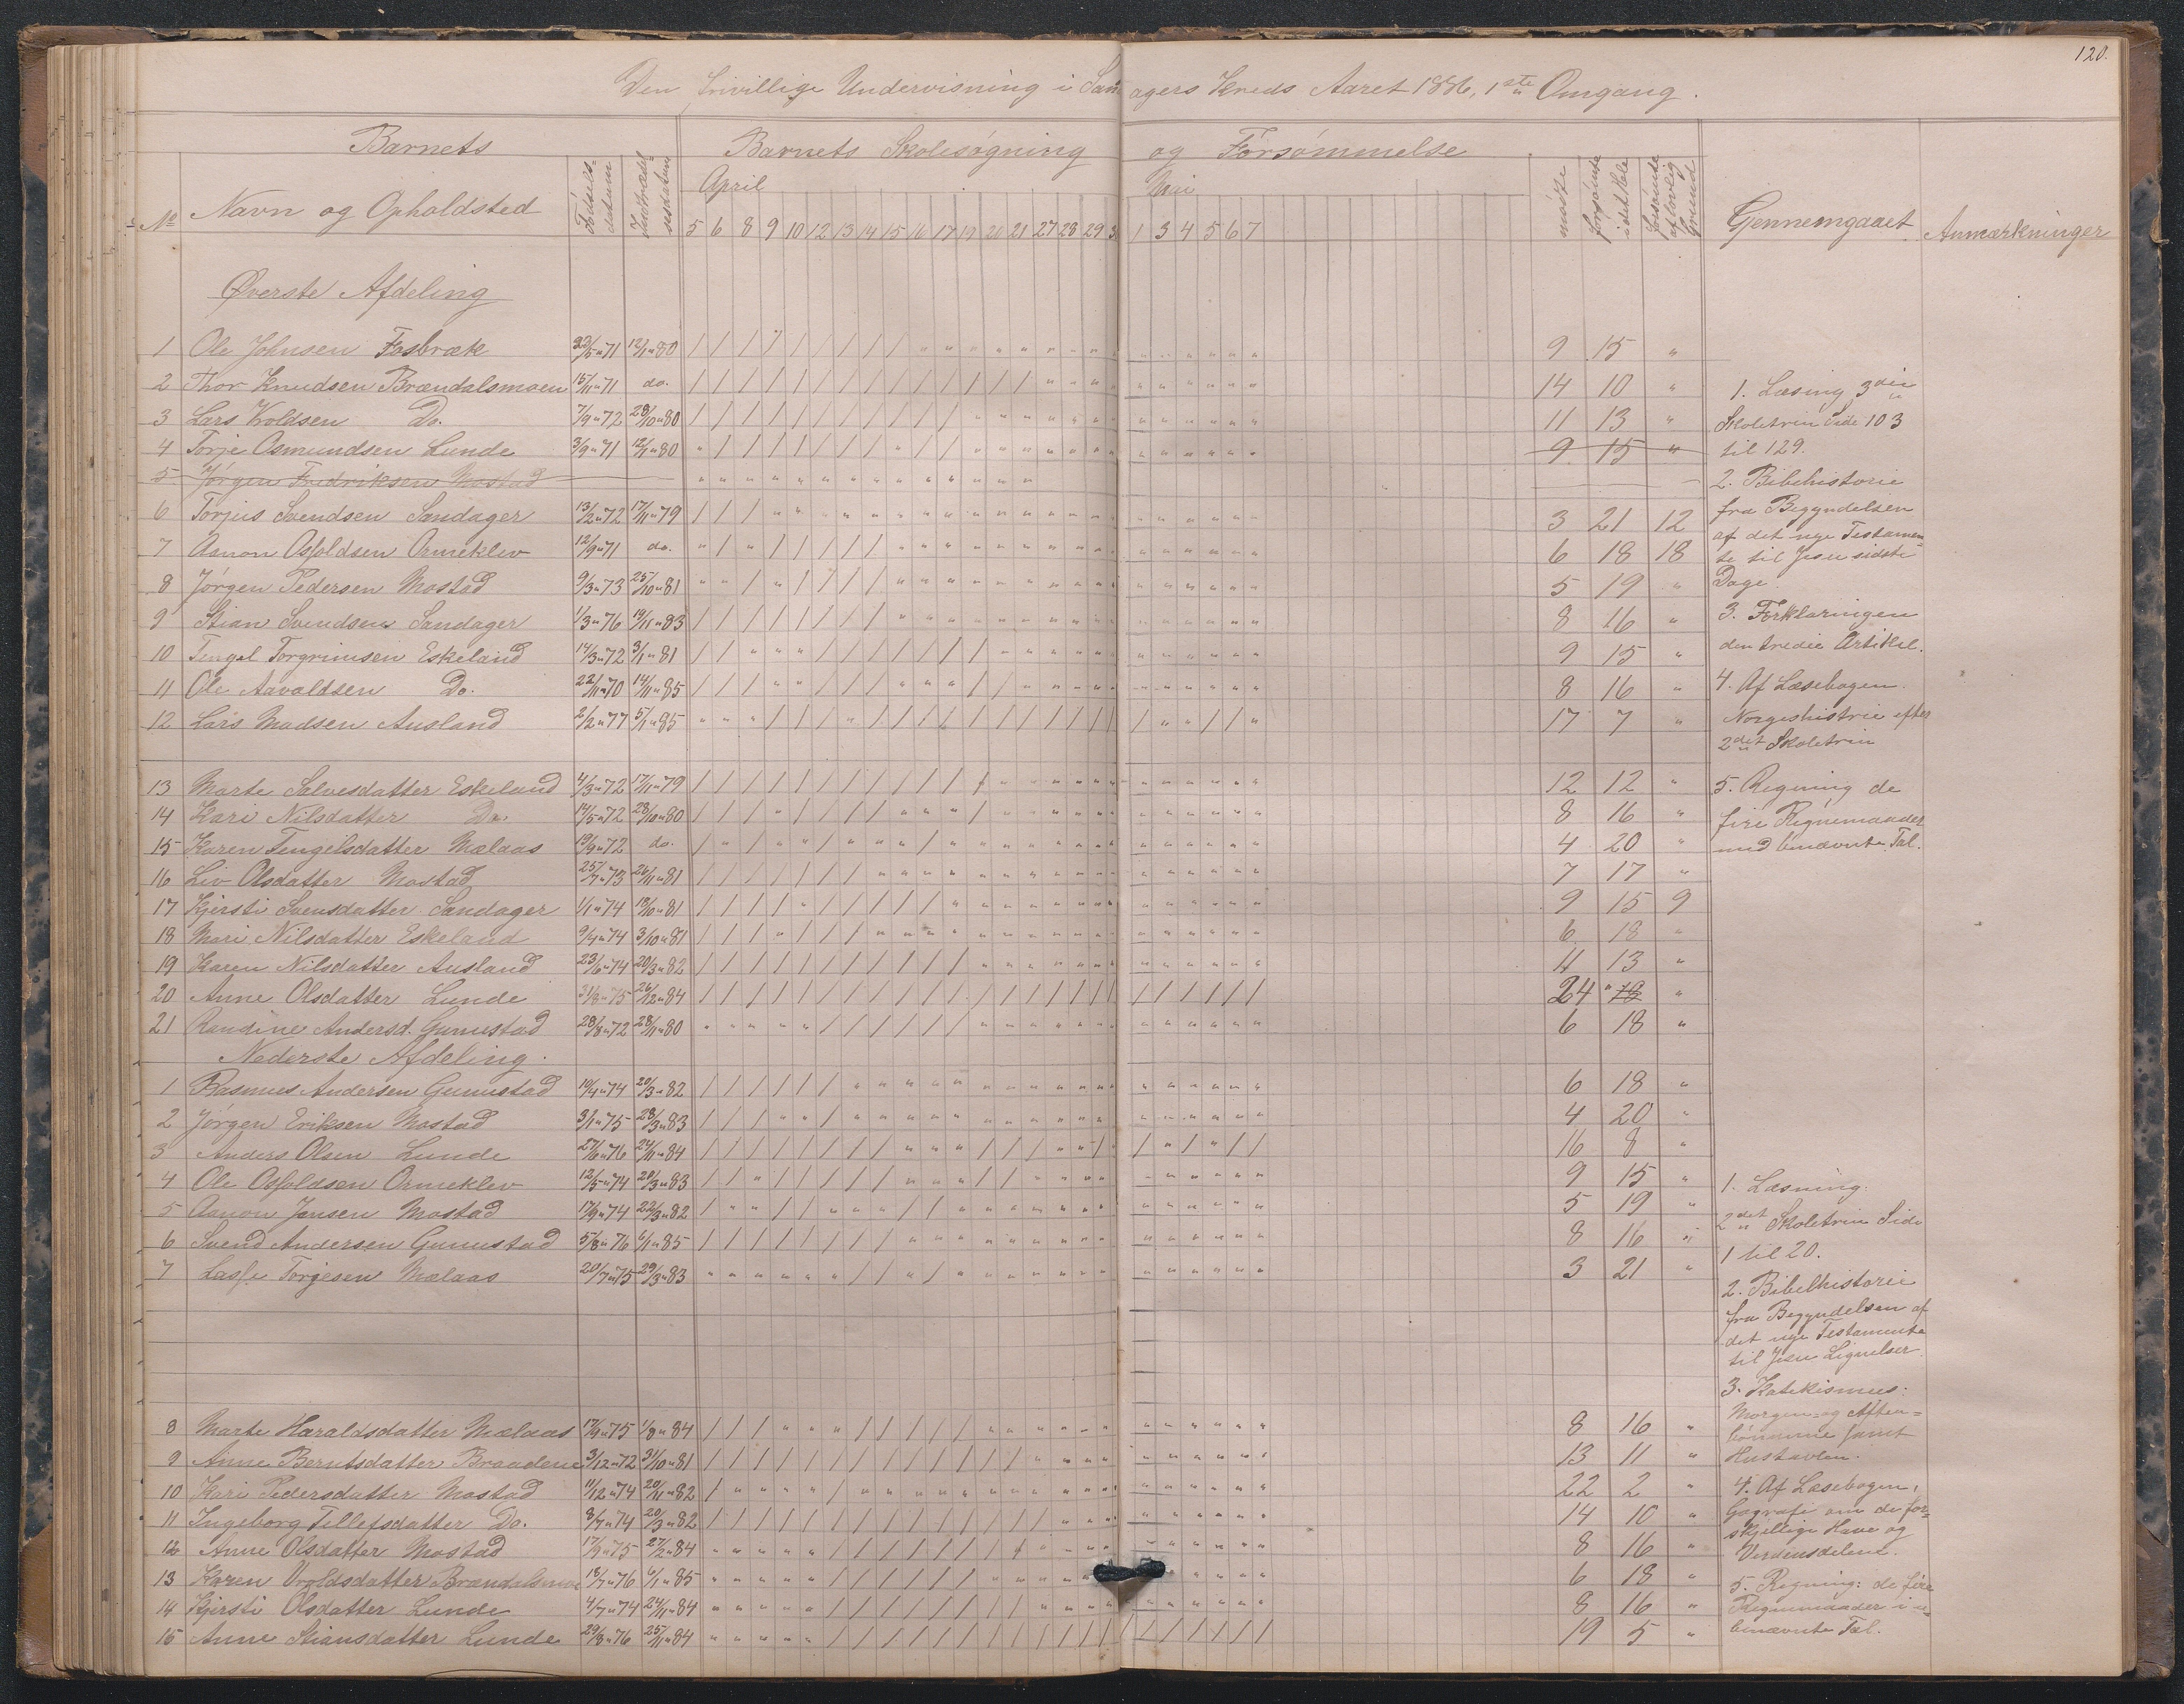 120.
Den frivillige Undervisning i Sandagers Kreds Aaret 1886, 1ste Omgang.
Barnets
Barnets Skolesøgning og Forsømmelse
No Navn og Opholdsted
Fødselsdatum
Indtrædelsesdatum
April
Mai
5 6 8 9 10 12 13 14 15 16 17 19 20 21 27 28 29 30 1 3 4 5 6 7
mødte
forsømte i det Hele
forsømte af lovlig Grund
Gjennemgaaet
Anmærkninger
Øverste Afdeling
1 Ole Johnsen Fosbræk 22/5 " 71 12/1 " 80 9 15 "
2 Thor Knudsen Brændalsmoen 15/11 " 71 do. 14 10 "
3 Lars Woldsen Do. 7/9 " 72 28/10 " 80 11 13 "
4 Torje Osmundsen Lunde 3/9 " 71 12/1 " 80 9 15 "
5 Jørgen Fredriksen Mostad
6 Torjus Svendsen Sandager 13/2 " 72 17/11 " 79 3 21 12
7 Aanon Osfoldsen Ormeklev 12/9 " 71 do. 6 18 18
8 Jørgen Pedersen Mostad 9/3 " 73 25/10 " 81 5 19 "
9 Stian Svendsen Sandager 1/3 " 76 19/11 " 83 8 16 "
10 Tengel Torgrimsen Eskeland 14/3 " 72 3/1 " 81 9 15 "
11 Ole Aavaldsen Do. 22/11 " 70 14/11 " 85 8 16 "
12 Lars Madsen Ausland 2/2 " 77 5/1 " 85 17 7 "
13 Marte Salvesdatter Eskeland 4/3 " 72 17/11 " 79 12 12 "
14 Kari Nilsdatter Do. 14/5 " 72 28/10 " 80 8 16 "
15 Karen Tengelsdatter Mælaas 19/9 " 72 do. 4 20 "
16 Liv Olsdatter Mostad 25/7 " 73 26/11 " 81 7 17 "
17 Kjersti Svensdatter Sandager 1/1 " 74 18/10 " 81 9 15 9
18 Mari Nilsdatter Eskeland 9/4 " 74 3/10 " 81 6 18 "
19 Karen Nilsdatter Ausland 23/6 " 74 20/3 " 82 11 13 "
20 Anne Olsdatter Lunde 31/8 " 75 26/12 " 84 24 " "
21 Randine Andersd. Gumestad 28/8 " 72 28/11 " 80 6 18 "
Nederste Afdeling.
1 Rasmus Andersen Gumestad 10/4 " 74 20/3 " 82 6 18 "
2 Jørgen Eriksen Mostad 3/1 " 75 28/3 " 83 4 20 "
3 Anders Olsen Lunde 27/6 " 76 24/11 " 84 16 8 "
4 Ole Osfoldsen Ormeklev 12/5 " 74 29/3 " 83 9 15 "
5 Aanon Jensen Mostad 17/9 " 74 22/3 " 82 5 19 "
6 Svend Andersen Gumestad 5/8 " 76 6/1 " 85 8 16 "
7 Lasse Torjesen Mælaas 20/7 " 75 29/3 " 83 3 21 "
8 Marte Haraldsdatter Mælaas 17/9 " 75 1/8 " 84 8 16 "
9 Anne Berntsdatter Braadene 3/12 " 72 31/10 " 81 13 11 "
10 Kari Pedersdatter Mostad 11/12 " 74 20/11 " 82 22 2 "
11 Ingeborg Tellefsdatter Do. 8/7 " 74 20/3 " 82 14 10 "
12 Anne Olsdatter Mostad 17/9 " 75 27/2 " 84 8 16 "
13 Karen Oroldsdatter Brændalsmoen 18/7 " 76 6/1 " 85 6 18 "
14 Kjersti Olsdatter Lunde 4/7 " 74 24/11 " 84 8 16 "
15 Anne Stiansdatter Lunde 29/8 " 76 25/11 " 84 19 5 "
1. Læsing 3die
Skoletrin Side 103
til 129.
2. Bibehistorie
fra Begyndelsen
af det nye Testamen-
te til Jesu sidste
Dage.
3. Forklaringen
den tredie Artikel.
4. Af Læsebogen.
Norgeshistrie efter
2det Skoletrin
5. Regning de
fire Regnemaader
med benævnte Tal.
1. Læsning:
2det Skoletrin Side
1 til 20.
2. Bibelhistorie
fra Begyndelsen af
det nye Testamente
til Jesu Lignelser.
3. Katekismus:
Morgen- og Aften-
bønnerne samt
Hustavlen.
4. Af Læsebogen,
Gografi om de for-
skjellige Have og
Verdensdelene.
5. Regning: de fire
Regnemaader i u-
benævnte Tal.